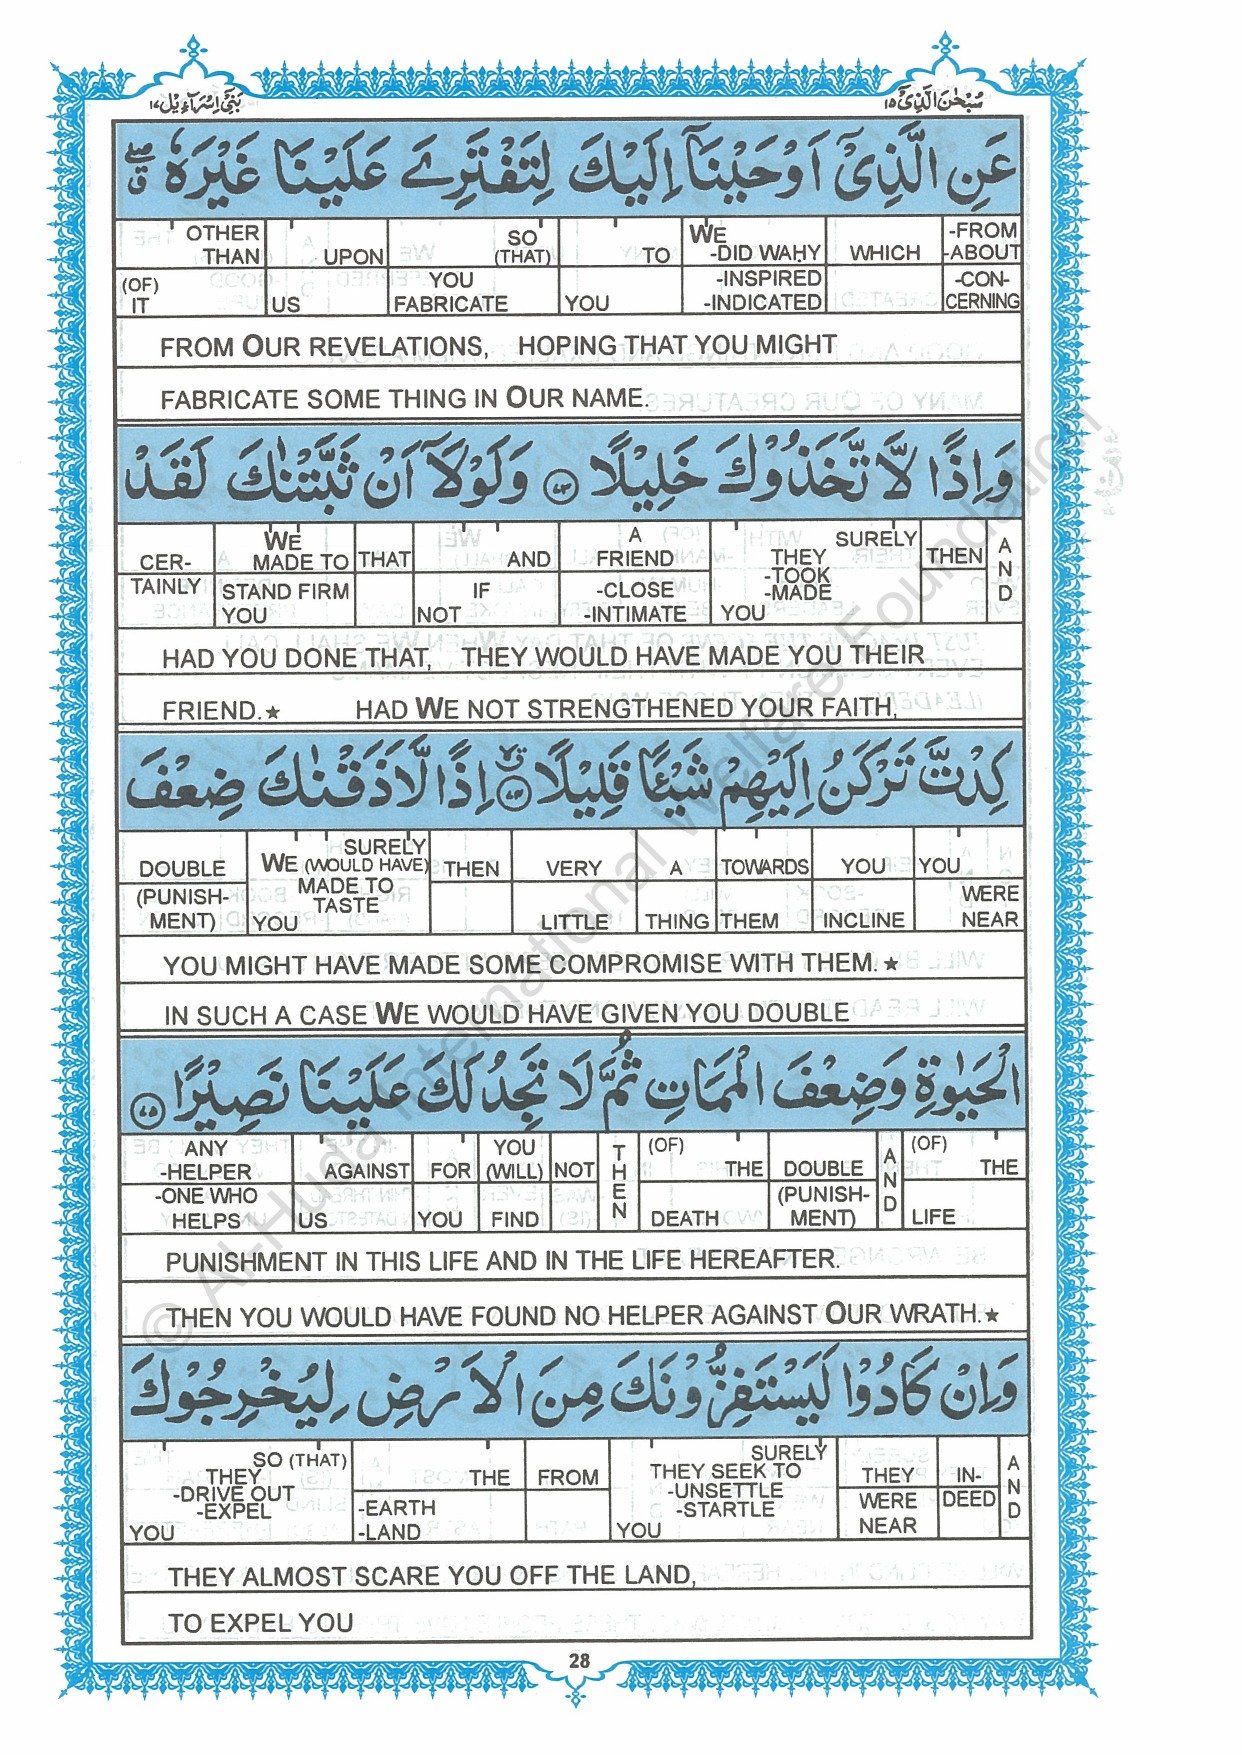 سُبْحٰنَ الَّذِیْۤ ۱۵
بَنِیْۤ اِسْرَآءِیْل ۱۷
عَنِ الَّذِیْۤ اَوْحَیْنَاۤ اِلَیْكَ لِتَفْتَرِیَ عَلَیْنَا غَیْرَهٗ ۖق
OTHER THAN (OF) IT | UPON US | SO (THAT) YOU FABRICATE | TO YOU | WE -DID WAḤY -INSPIRED -INDICATED | WHICH | -FROM -ABOUT -CON-CERNING
FROM OUR REVELATIONS, HOPING THAT YOU MIGHT
FABRICATE SOME THING IN OUR NAME.
وَاِذًا لَّا تَّخَذُوْكَ خَلِیْلًا ﴿۷۳﴾ وَلَوْلَاۤ اَنْ ثَبَّتْنٰكَ لَقَدْ
CER-TAINLY | WE MADE TO STAND FIRM YOU | THAT | AND IF NOT | A FRIEND -CLOSE -INTIMATE | SURELY THEY -TOOK -MADE YOU | THEN | AND
HAD YOU DONE THAT, THEY WOULD HAVE MADE YOU THEIR
FRIEND.★ HAD WE NOT STRENGTHENED YOUR FAITH,
كِدْتَّ تَرْكَنُ اِلَیْهِمْ شَیْـًٔا قَلِیْلًا ﴿۷۴﴾ اِذًا لَّاَذَقْنٰكَ ضِعْفَ
DOUBLE (PUNISH-MENT) | SURELY WE (WOULD HAVE) MADE TO TASTE YOU | THEN | VERY LITTLE | A THING | TOWARDS THEM | YOU INCLINE | YOU WERE NEAR
YOU MIGHT HAVE MADE SOME COMPROMISE WITH THEM.★
IN SUCH A CASE WE WOULD HAVE GIVEN YOU DOUBLE
الْحَیٰوةِ وَضِعْفَ الْمَمَاتِ ثُمَّ لَا تَجِدُ لَكَ عَلَیْنَا نَصِیْرًا ﴿۷۵﴾
ANY -HELPER -ONE WHO HELPS | AGAINST US | FOR YOU | YOU (WILL) FIND | NOT | THEN | (OF) THE DEATH | DOUBLE (PUNISH-MENT) | AND | (OF) THE LIFE
PUNISHMENT IN THIS LIFE AND IN THE LIFE HEREAFTER.
THEN YOU WOULD HAVE FOUND NO HELPER AGAINST OUR WRATH.★
وَاِنْ كَادُوْا لَیَسْتَفِزُّوْنَكَ مِنَ الْاَرْضِ لِیُخْرِجُوْكَ
SO (THAT) THEY -DRIVE OUT -EXPEL YOU | THE -EARTH -LAND | FROM | SURELY THEY SEEK TO -UNSETTLE -STARTLE YOU | THEY WERE NEAR | IN-DEED | AND
THEY ALMOST SCARE YOU OFF THE LAND,
TO EXPEL YOU
28
© Al-Huda International Welfare Foundation